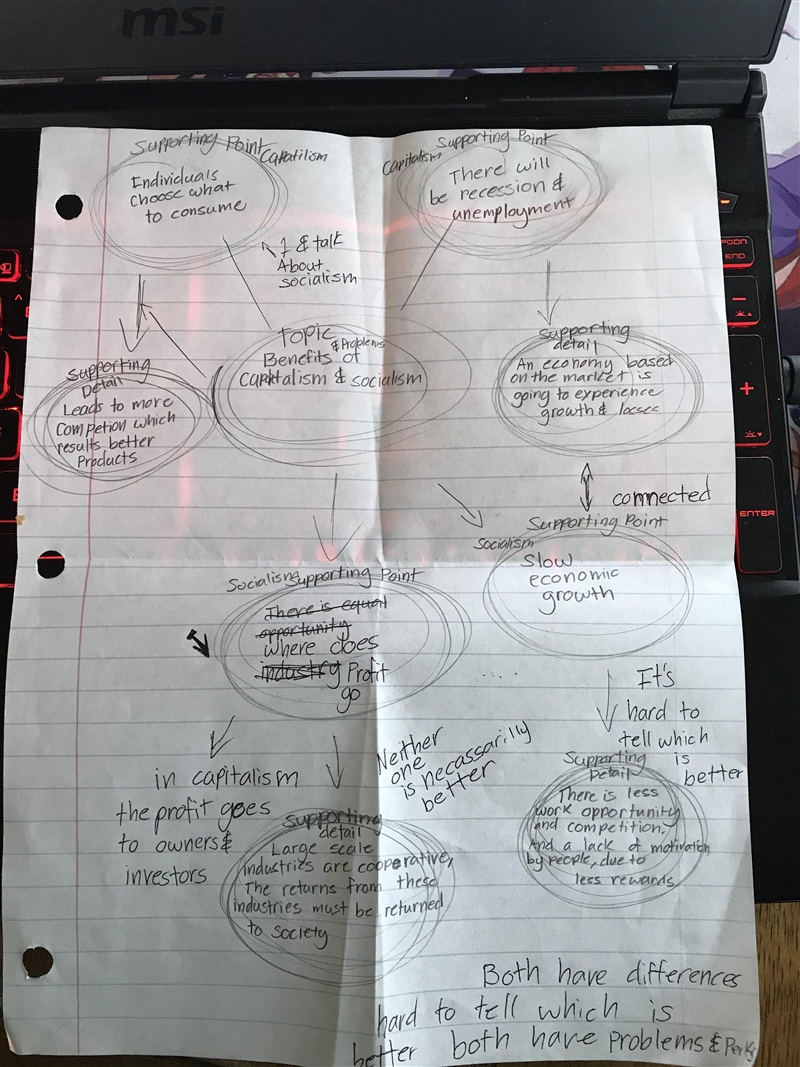 msi
Supporting Point
Capatilism
Individuals
Choose what
to consume
Supporting Point
Capitalism
There will
be recession &
unemployment
1 & talk
About
socialism
Topic
& Problems
Benefits of
Capitalism & socialism
Supporting
Detail
Leads to more
Competion which
results better
Products
Supporting
detail
An economy based
on the market is
going to experience
growth & losses
connected
Supporting Point
Socialism
Slow
economic
growth
Socialism Supporting Point
There is equal
opportunity
where does
industry Profit
go
in capitalism
the profit goes
to owners &
investors
Supporting
detail
Large scale
industries are cooperative,
The returns from these
industries must be returned
to society
Neither
one
is necassarilly
better
It's
hard to
tell which
is
better
Supporting
Detail
There is less
work opportunity
and competition.
And a lack of motivation
by people, due to
less rewards
Both have differences
hard to tell which is
better both have problems & Perks
END
ENTER